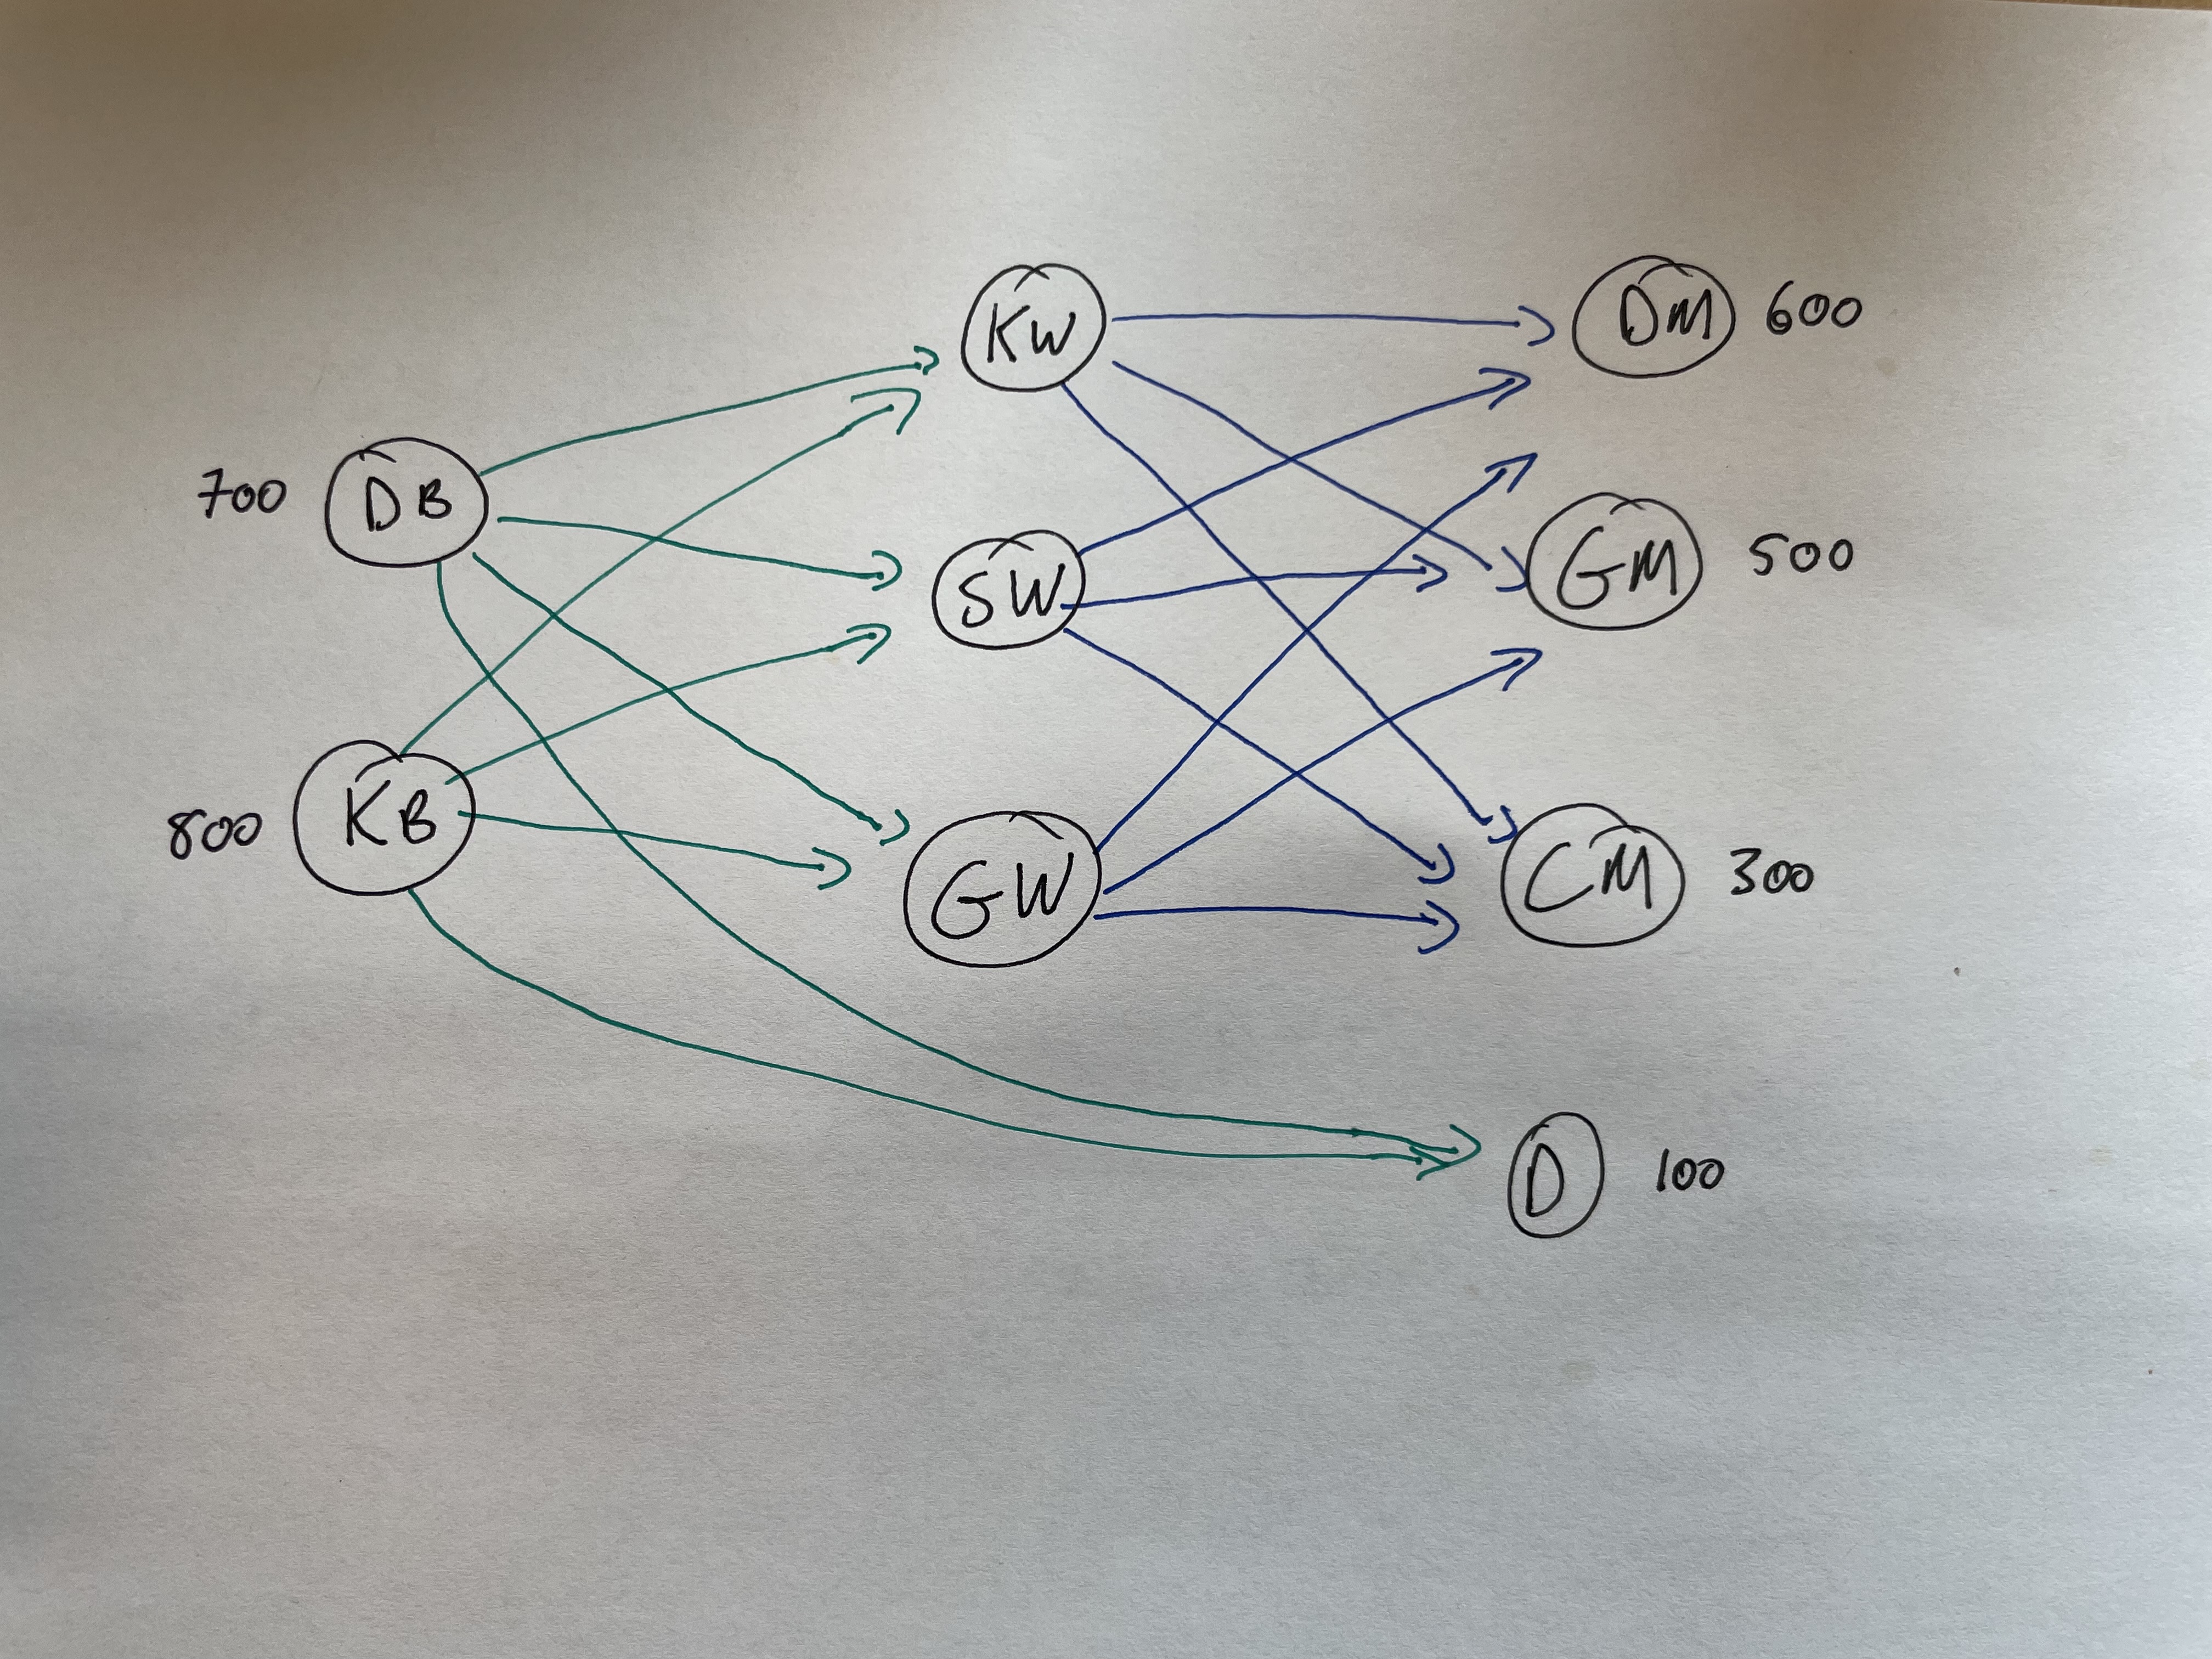 700 DB
800 KB
KW
SW
GW
DM 600
GM 500
CM 300
D 100